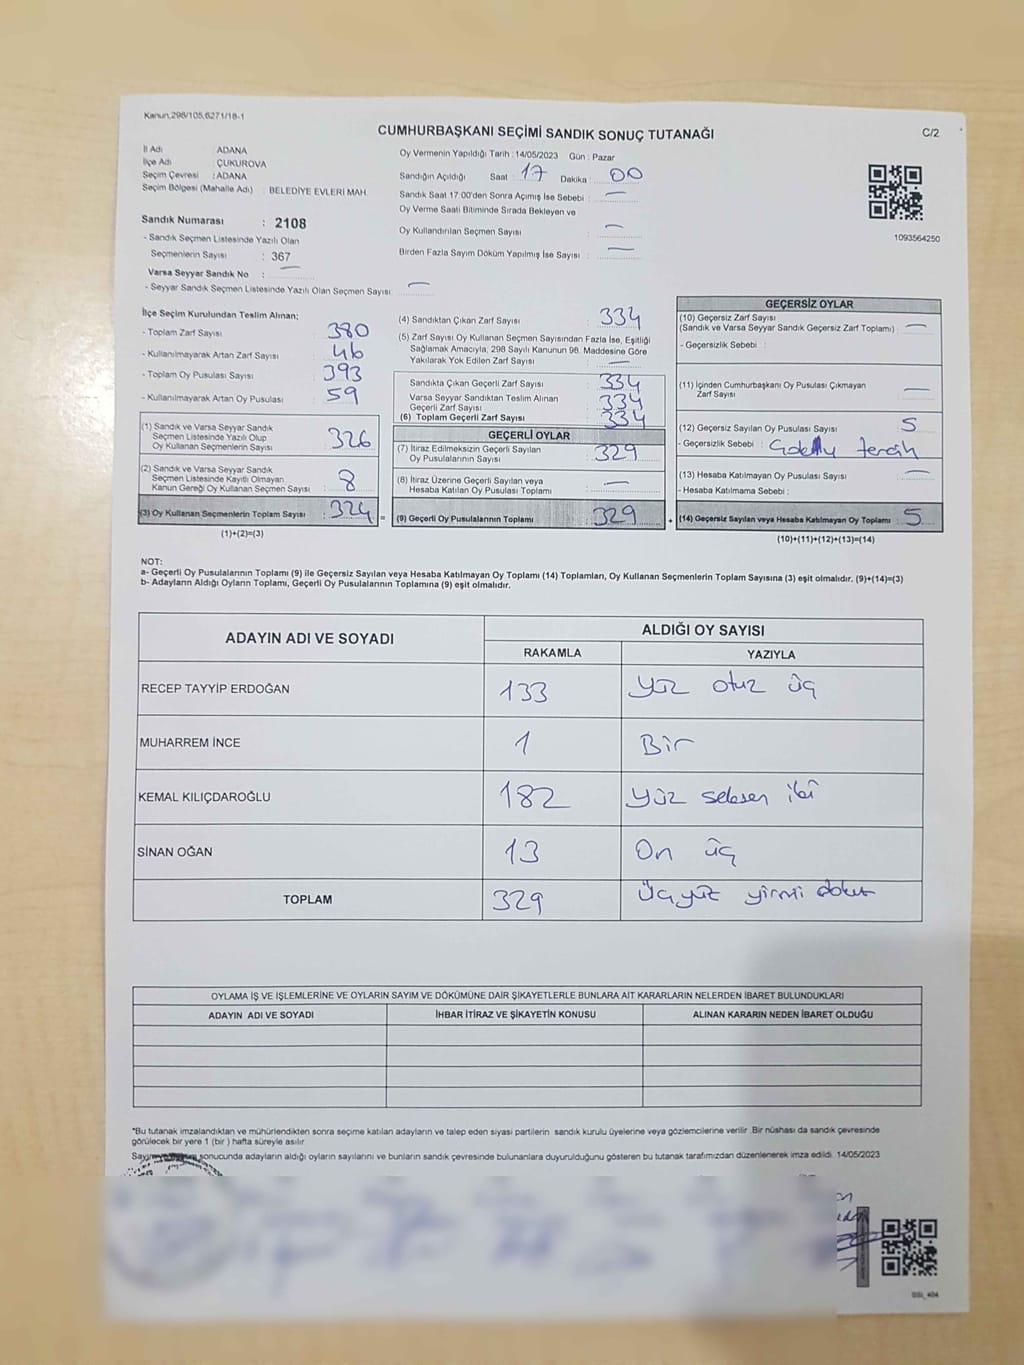 Kanun,298/105,6271/18-1
CUMHURBAŞKANI SEÇİMİ SANDIK SONUÇ TUTANAĞI
C/2
İl Adı : ADANA
İlçe Adı : ÇUKUROVA
Seçim Çevresi : ADANA
Seçim Bölgesi (Mahalle Adı) : BELEDİYE EVLERİ MAH.
Sandık Numarası : 2108
- Sandık Seçmen Listesinde Yazılı Olan
Seçmenlerin Sayısı : 367
Varsa Seyyar Sandık No : —
- Seyyar Sandık Seçmen Listesinde Yazılı Olan Seçmen Sayısı: —
Oy Vermenin Yapıldığı Tarih : 14/05/2023 Gün : Pazar
Sandığın Açıldığı Saat : 17 Dakika : 00
Sandık Saat 17:00'den Sonra Açımış İse Sebebi : —
Oy Verme Saati Bitiminde Sırada Bekleyen ve
Oy Kullandırılan Seçmen Sayısı : —
Birden Fazla Sayım Döküm Yapılmış İse Sayısı : —
1093564250
İlçe Seçim Kurulundan Teslim Alınan;
- Toplam Zarf Sayısı : 380
- Kullanılmayarak Artan Zarf Sayısı : 46
- Toplam Oy Pusulası Sayısı : 393
- Kullanılmayarak Artan Oy Pusulası : 59
(1) Sandık ve Varsa Seyyar Sandık
Seçmen Listesinde Yazılı Olup
Oy Kullanan Seçmenlerin Sayısı : 326
(2) Sandık ve Varsa Seyyar Sandık
Seçmen Listesinde Kayıtlı Olmayan
Kanun Gereği Oy Kullanan Seçmen Sayısı : 8
(3) Oy Kullanan Seçmenlerin Toplam Sayısı : 324 =
(1)+(2)=(3)
(4) Sandıktan Çıkan Zarf Sayısı : 334
(5) Zarf Sayısı Oy Kullanan Seçmen Sayısından Fazla İse, Eşitliği
Sağlamak Amacıyla, 298 Sayılı Kanunun 98. Maddesine Göre
Yakılarak Yok Edilen Zarf Sayısı : —
Sandıkta Çıkan Geçerli Zarf Sayısı : 334
Varsa Seyyar Sandıktan Teslim Alınan
Geçerli Zarf Sayısı : 334
(6) Toplam Geçerli Zarf Sayısı : 334
GEÇERLİ OYLAR
(7) İtiraz Edilmeksizin Geçerli Sayılan
Oy Pusulalarının Sayısı : 329
(8) İtiraz Üzerine Geçerli Sayılan veya
Hesaba Katılan Oy Pusulası Toplamı : —
(9) Geçerli Oy Pusulalarının Toplamı : 329 +
GEÇERSİZ OYLAR
(10) Geçersiz Zarf Sayısı
(Sandık ve Varsa Seyyar Sandık Geçersiz Zarf Toplamı) : —
- Geçersizlik Sebebi :
(11) İçinden Cumhurbaşkanı Oy Pusulası Çıkmayan
Zarf Sayısı : —
(12) Geçersiz Sayılan Oy Pusulası Sayısı : 5
- Geçersizlik Sebebi : tercih
(13) Hesaba Katılmayan Oy Pusulası Sayısı : —
- Hesaba Katılmama Sebebi :
(14) Geçersiz Sayılan veya Hesaba Katılmayan Oy Toplamı : 5
(10)+(11)+(12)+(13)=(14)
NOT:
a- Geçerli Oy Pusulalarının Toplamı (9) ile Geçersiz Sayılan veya Hesaba Katılmayan Oy Toplamı (14) Toplamları, Oy Kullanan Seçmenlerin Toplam Sayısına (3) eşit olmalıdır. (9)+(14)=(3)
b- Adayların Aldığı Oyların Toplamı, Geçerli Oy Pusulalarının Toplamına (9) eşit olmalıdır.
ADAYIN ADI VE SOYADI
ALDIĞI OY SAYISI
RAKAMLA YAZIYLA
RECEP TAYYİP ERDOĞAN 133 Yüz otuz üç
MUHARREM İNCE 1 Bir
KEMAL KILIÇDAROĞLU 182 Yüz seksen iki
SİNAN OĞAN 13 On üç
TOPLAM 329 Üçyüz yirmi dokuz
OYLAMA İŞ VE İŞLEMLERİNE VE OYLARIN SAYIM VE DÖKÜMÜNE DAİR ŞİKAYETLERLE BUNLARA AİT KARARLARIN NELERDEN İBARET BULUNDUKLARI
ADAYIN ADI VE SOYADI İHBAR İTİRAZ VE ŞİKAYETİN KONUSU ALINAN KARARIN NEDEN İBARET OLDUĞU
*Bu tutanak imzalandıktan ve mühürlendikten sonra seçime katılan adayların ve talep eden siyasi partilerin sandık kurulu üyelerine veya gözlemcilerine verilir .Bir nüshası da sandık çevresinde
görülecek bir yere 1 (bir ) hafta süreyle asılır
sonucunda adayların aldığı oyların sayılarını ve bunların sandık çevresinde bulunanlara duyurulduğunu gösteren bu tutanak tarafımızdan düzenlenerek imza edildi. 14/05/2023